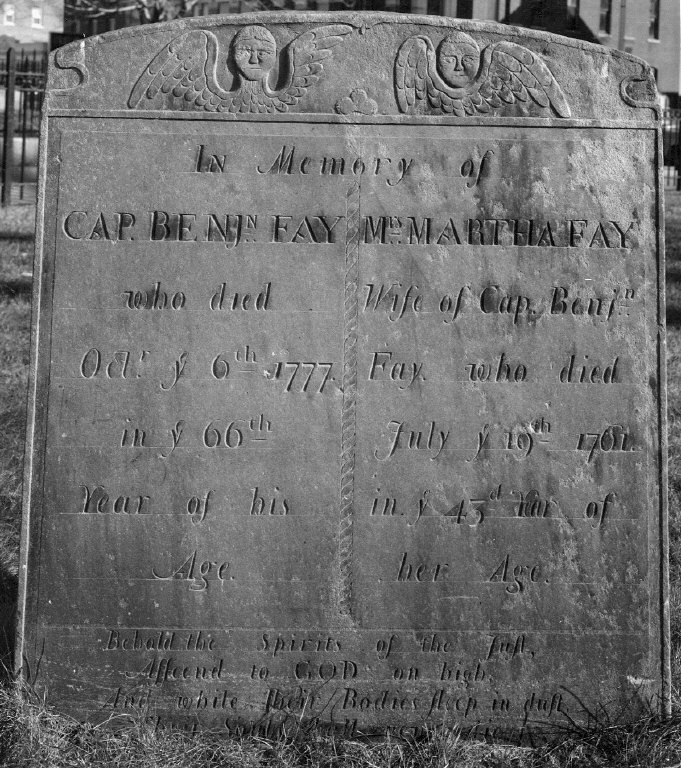 In Memory of
CAP. BENJN. FAY
who died
Octr. ye 6th 1777.
in ye 66th
Year of his
Age.
MRS. MARTHA FAY
Wife of Cap. Benjn.
Fay. who died
July ye 19th 1761.
in ye 43d Year of
her Age.
Behold the Spirits of the Juſt,
Aſſcend to GOD on high,
And while their Bodies ſleep in duſt
Their Souls ſhall never